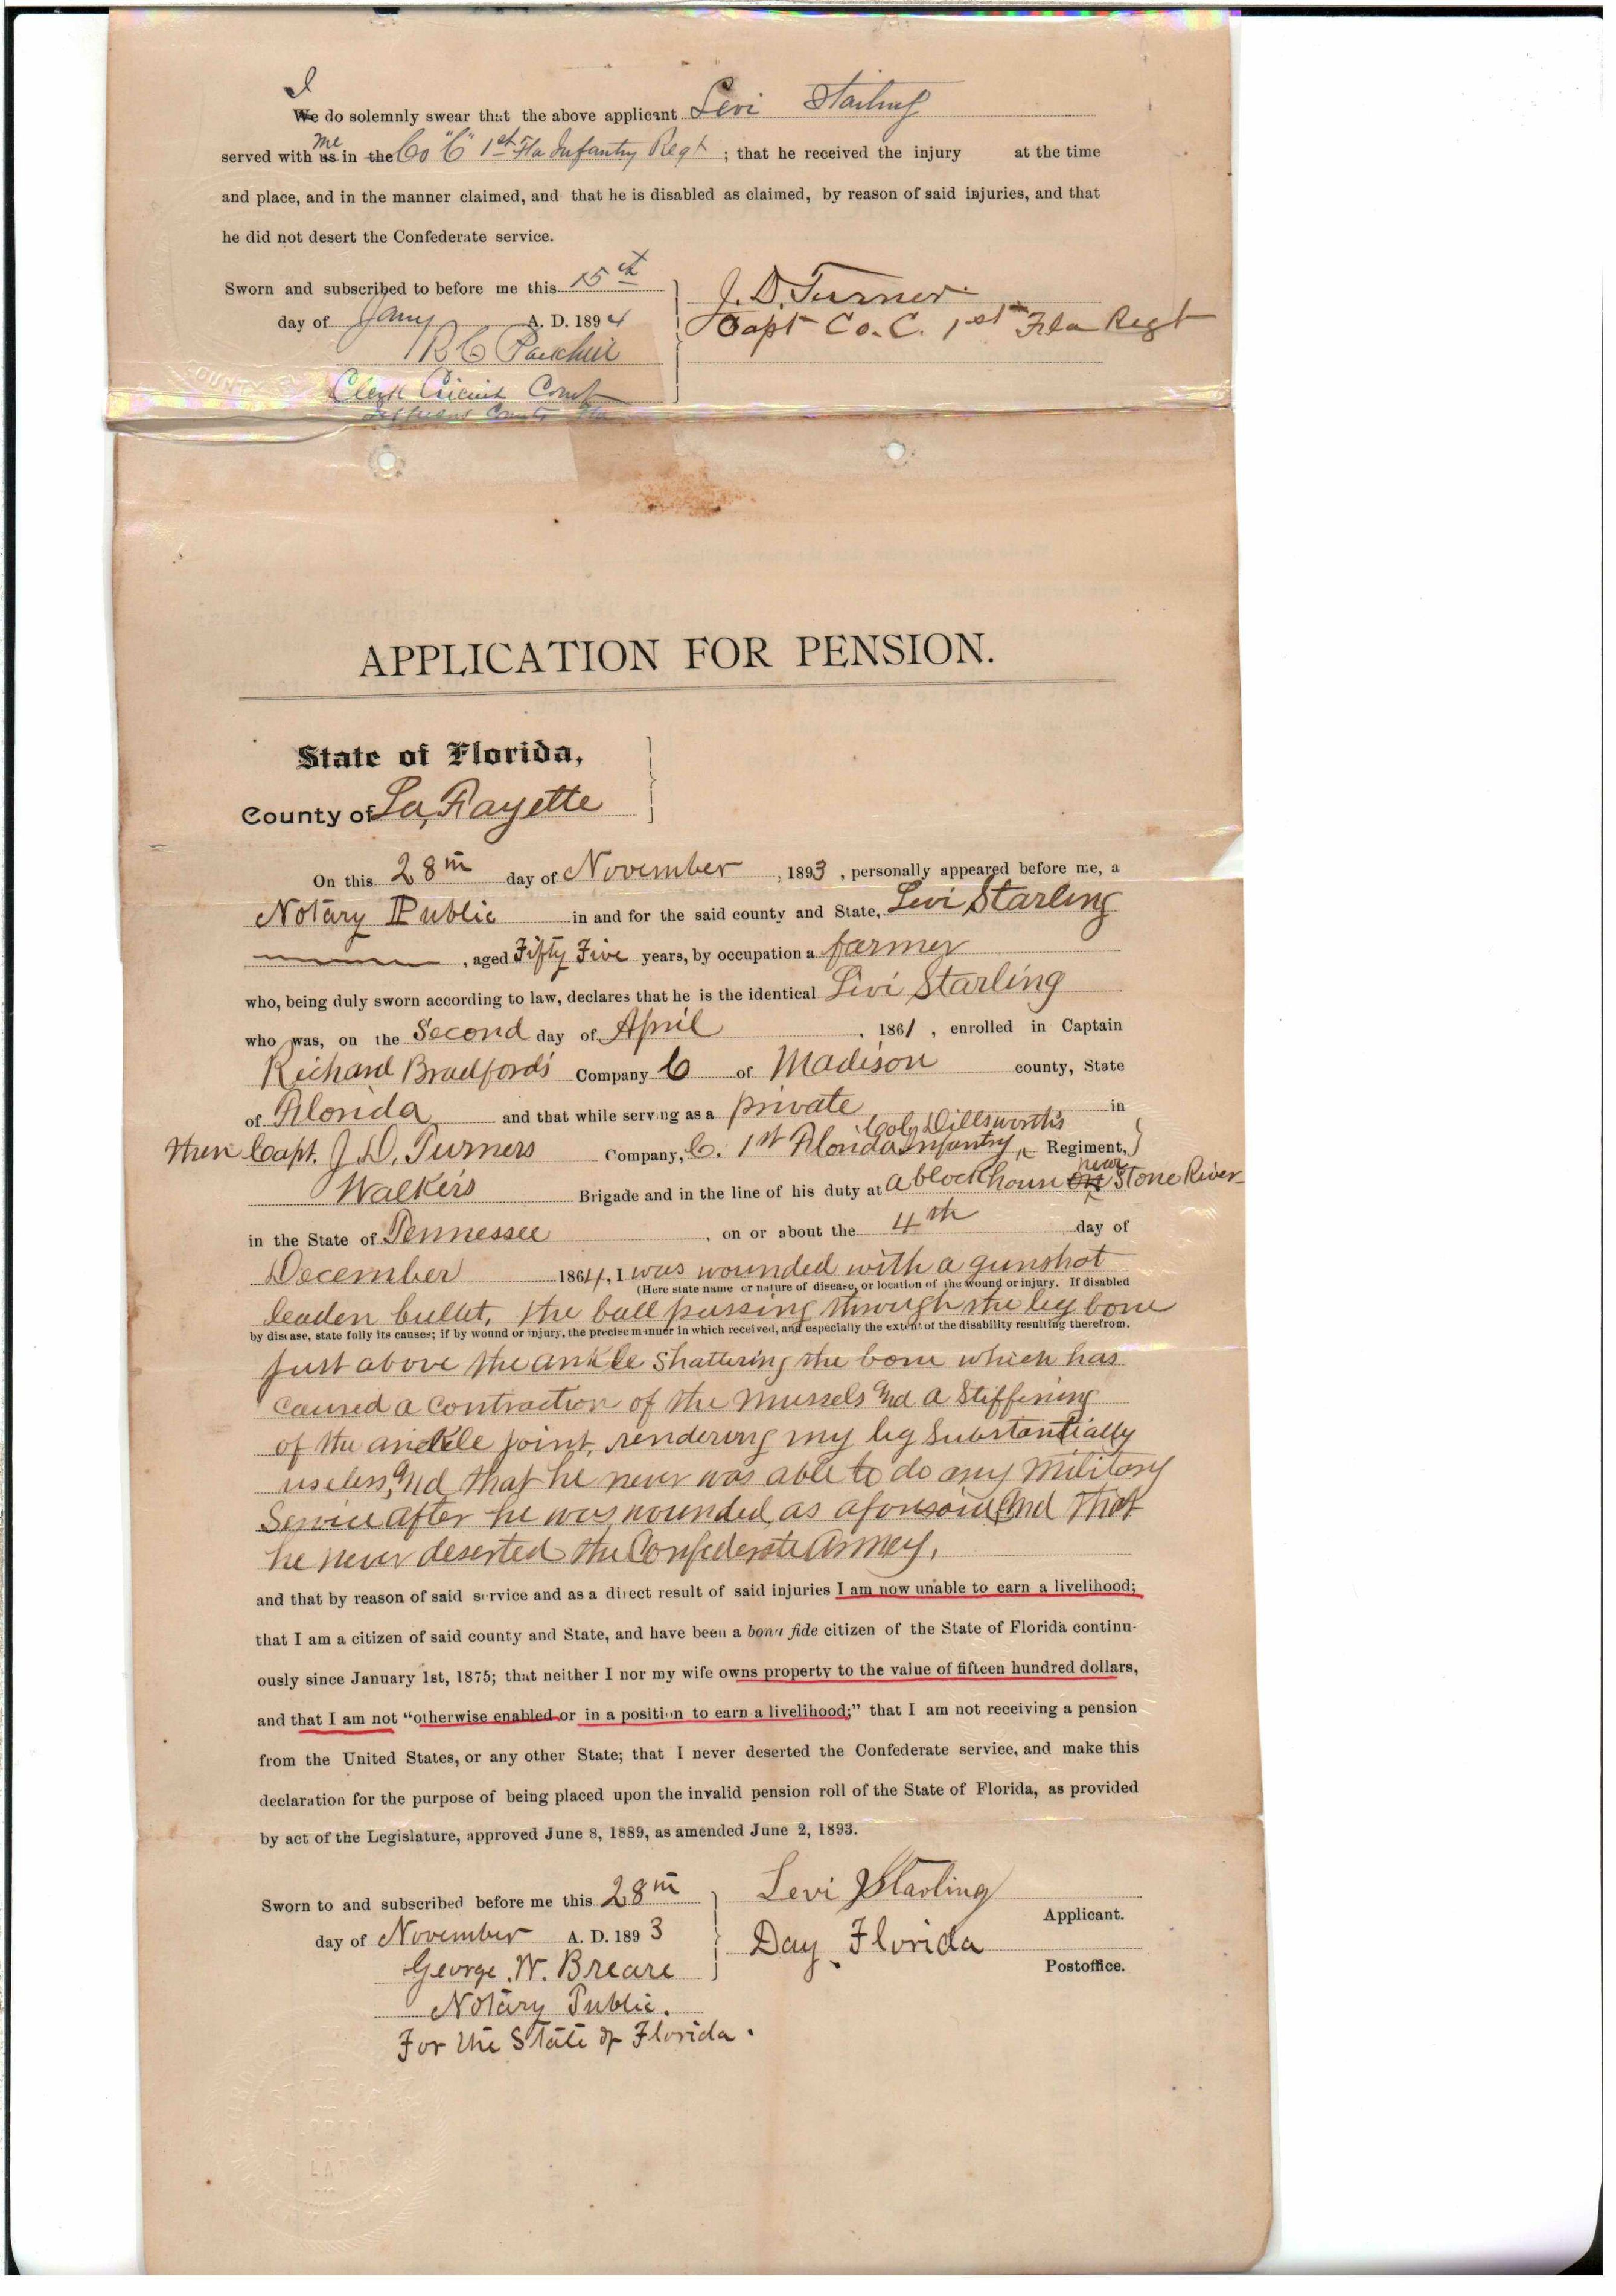 I
We do solemnly swear that the above applicant Levi Starling
served with us me in the Co "C" 1st Fla Infantry Regt ; that he received the injury at the time
and place, and in the manner claimed, and that he is disabled as claimed, by reason of said injuries, and that
he did not desert the Confederate service.
Sworn and subscribed to before me this 15th
day of Jany A. D. 1894
J. D. Turner
Capt Co. C. 1st Fla Regt
Clerk Circuit Court
Jefferson County Fla
APPLICATION FOR PENSION.
State of Florida,
County of La,Fayette
On this 28th day of November , 1893 , personally appeared before me, a
Notary Public in and for the said county and State, Levi Starling
, aged Fifty Five years, by occupation a farmer
who, being duly sworn according to law, declares that he is the identical Levi Starling
who was, on the Second day of April , 1861 , enrolled in Captain
Richard Bradford's Company C of Madison county, State
of Florida and that while serving as a private in
Then Capt. J. D. Turners Company, C. 1st Florida Infantry, Col. Dillsworth's Regiment,
Walkers Brigade and in the line of his duty at a block house on near Stone River
in the State of Tennessee , on or about the 4th day of
December 1864, I was wounded with a gunshot
(Here state name or nature of disease, or location of the wound or injury. If disabled
leaden bullet, the ball passing through the leg bone
by disease, state fully its causes; if by wound or injury, the precise manner in which received, and especially the extent of the disability resulting therefrom.
just above the ankle shattering the bone which has
caused a contraction of the mussels and a stiffening
of the anckle joint, rendering my leg substantially
useless, and that he never was able to do any military
Service after he was wounded, as aforesaid, and that
he never deserted the Confederate Armey,
and that by reason of said service and as a direct result of said injuries I am now unable to earn a livelihood;
that I am a citizen of said county and State, and have been a bona fide citizen of the State of Florida continu-
ously since January 1st, 1875; that neither I nor my wife owns property to the value of fifteen hundred dollars,
and that I am not "otherwise enabled or in a position to earn a livelihood;" that I am not receiving a pension
from the United States, or any other State; that I never deserted the Confederate service, and make this
declaration for the purpose of being placed upon the invalid pension roll of the State of Florida, as provided
by act of the Legislature, approved June 8, 1889, as amended June 2, 1893.
Sworn to and subscribed before me this 28th
day of November A. D. 1893
Levi Starling
Applicant.
Day, Florida
Postoffice.
George. W. Breare
Notary Public.
For the State of Florida.